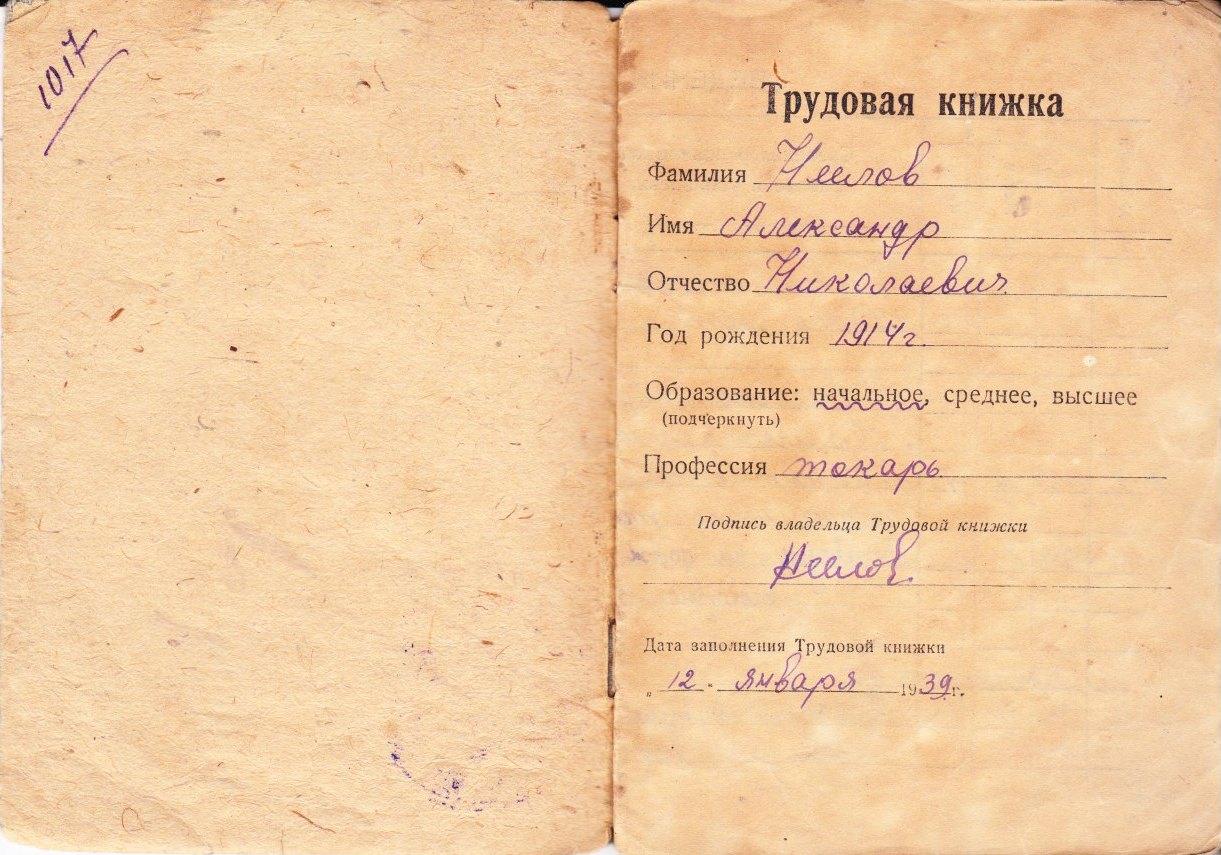 1017
Трудовая книжка
Фамилия Неелов
Имя Александр
Отчество Николаевич
Год рождения 1914г.
Образование: начальное, среднее, высшее
(подчеркнуть)
Профессия токарь
Подпись владельца Трудовой книжки
Неелов
Дата заполнения Трудовой книжки
„ 12 " января 1939 г.